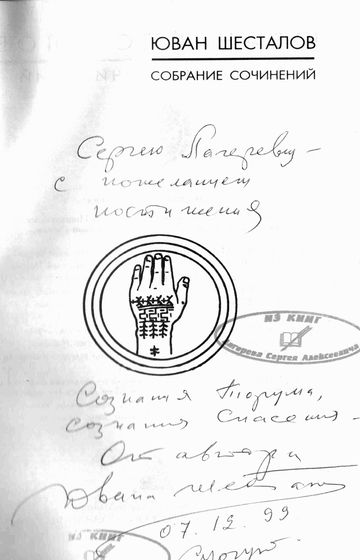 ЮВАН ШЕСТАЛОВ
СОБРАНИЕ СОЧИНЕНИЙ
Сергею Лагереву –
с пожеланием
постижения
ИЗ КНИГ
Лагерева Сергея Алексеевича
Сознания Торума,
сознания Спасения –
От автора
Ювана Шесталова
07.12.99
ИЗ КНИГ
Сургут